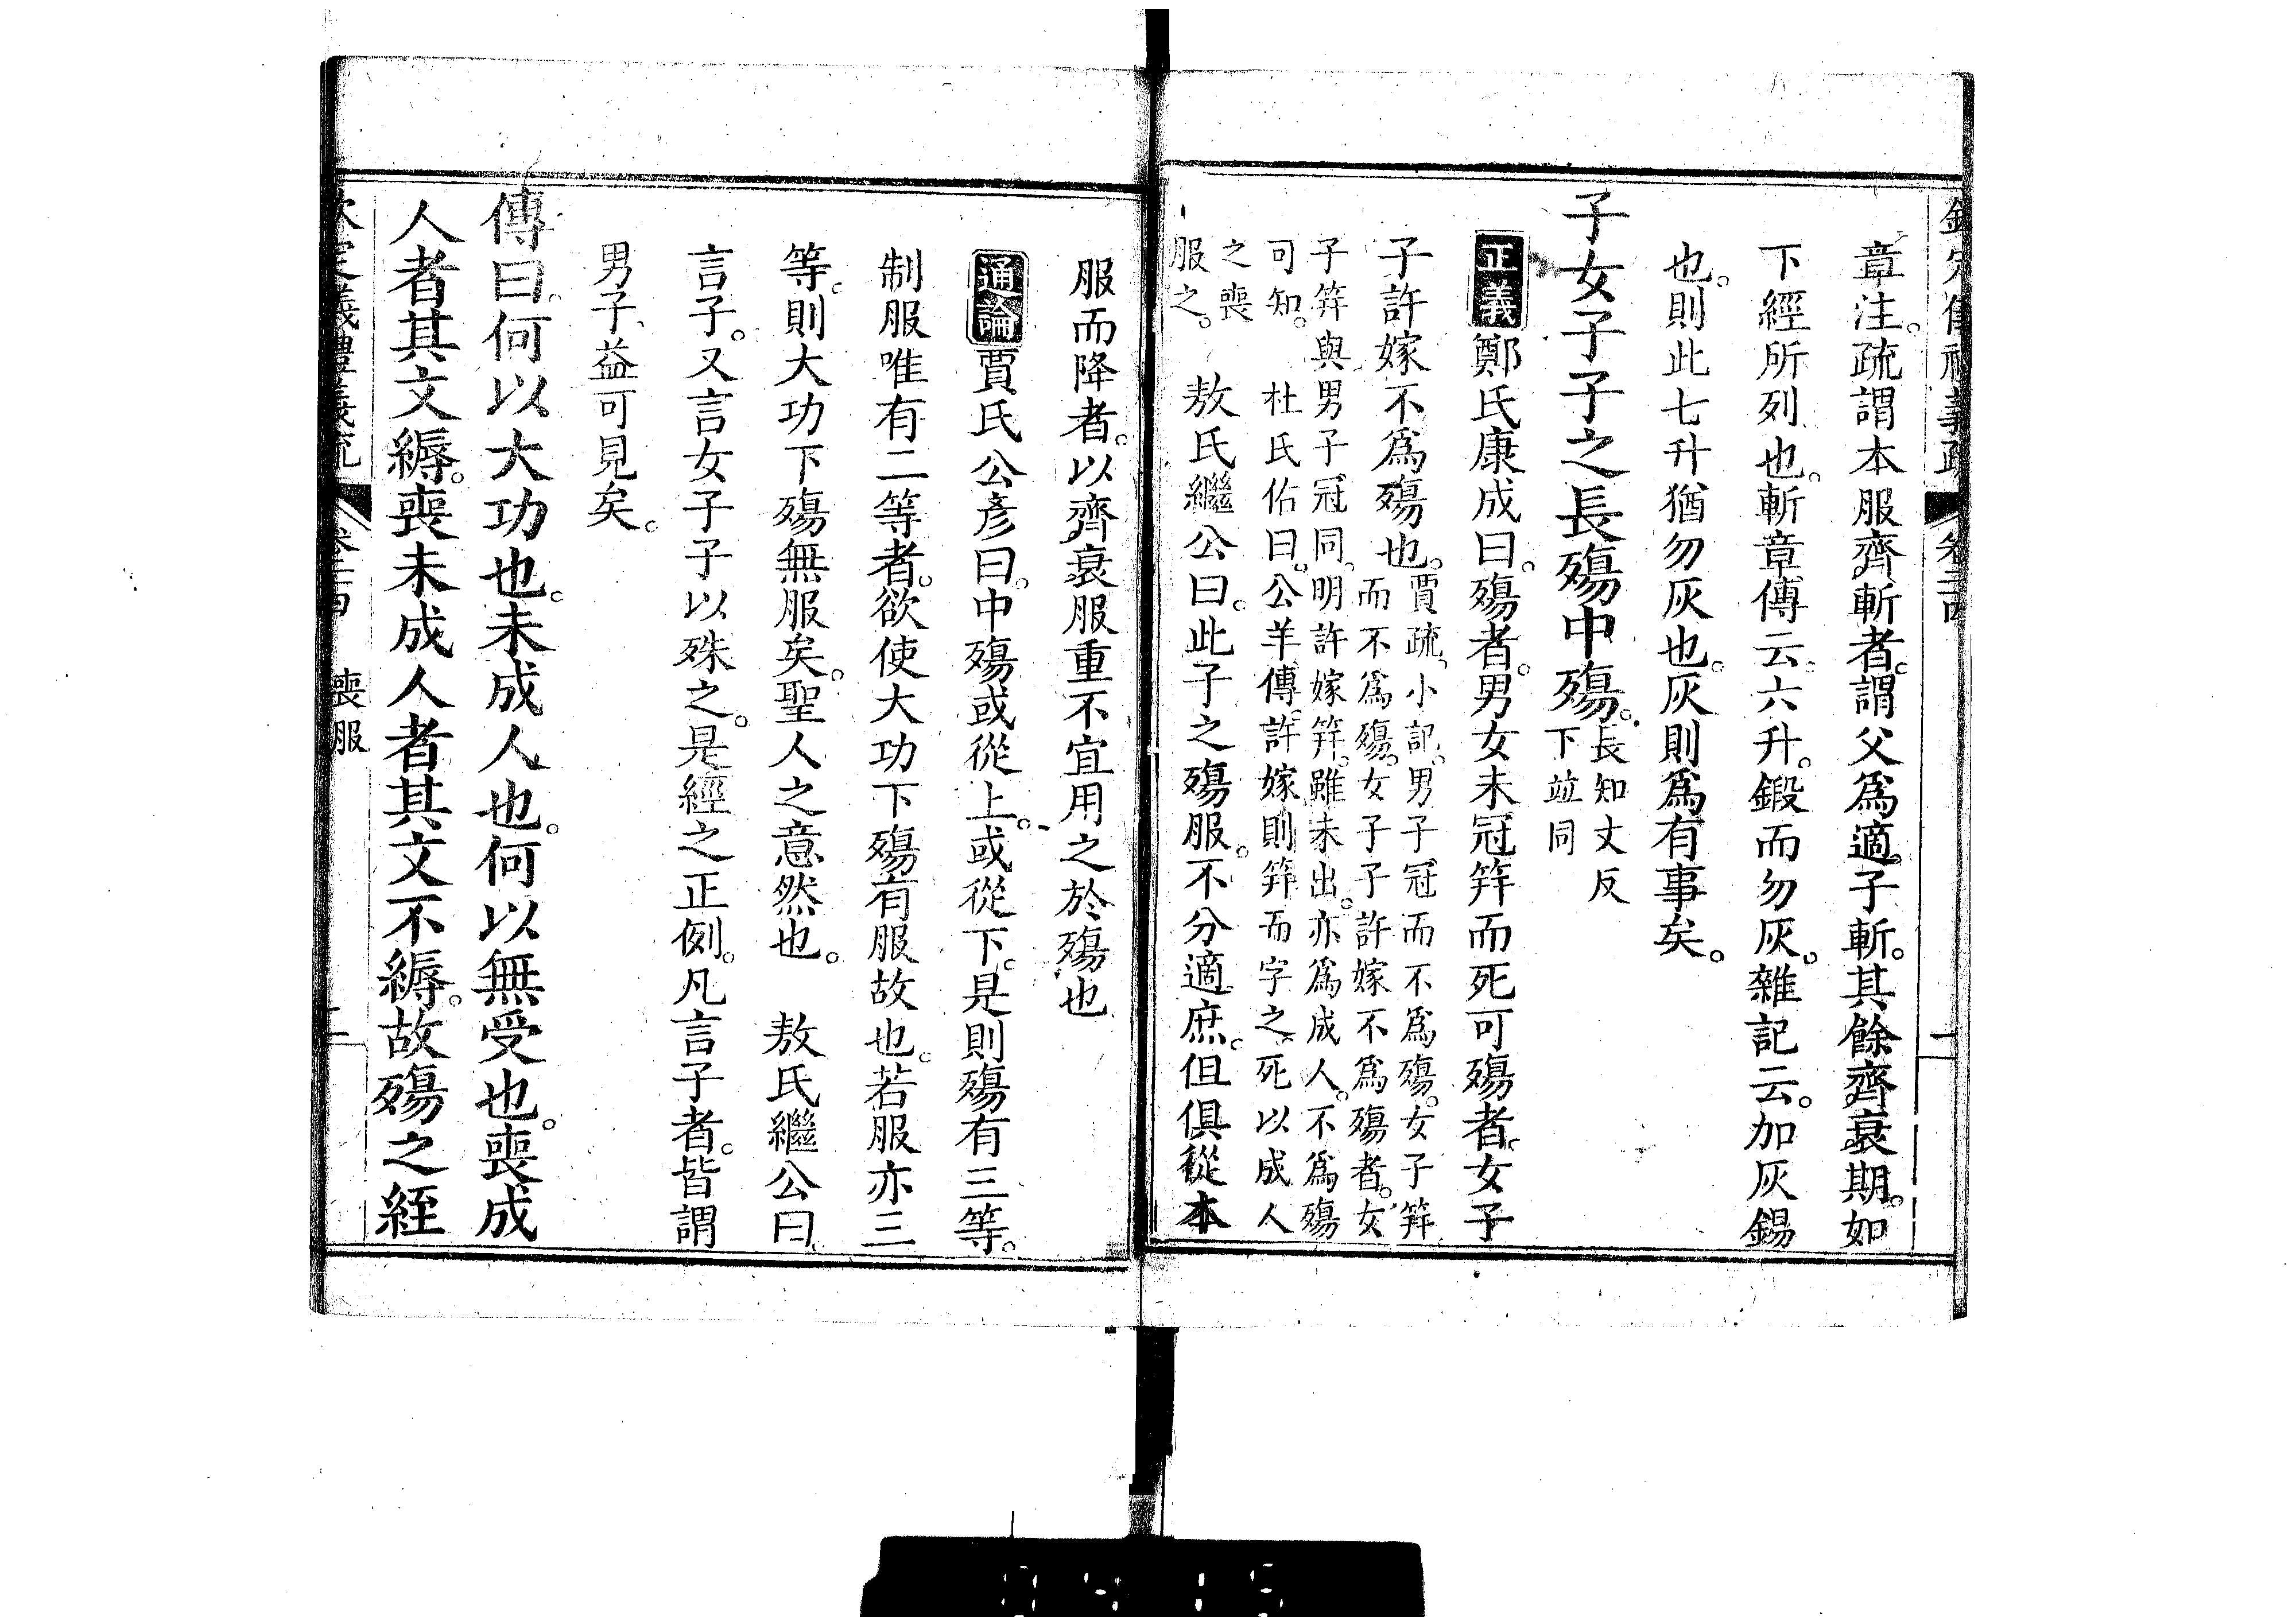 章注。疏謂本服齊斬者。謂父爲適子斬。其餘齊衰期。如
下經所列也。斬章傳云。六升。鍛而勿灰。雜記云。加灰錫
也。則此七升猶勿灰也。灰則爲有事矣。
子女子子之長殤中殤。長知丈反
下竝同
正義鄭氏康成曰。殤者。男女未冠笄而死可殤者。女子
子許嫁不爲殤也。賈疏。小記。男子冠而不爲殤。女子笄
而不爲殤。女子子許嫁不爲殤者。女
子笄與男子冠同。明許嫁笄。雖未出。亦爲成人。不爲殤
可知。 杜氏佑曰。公羊傳。許嫁則笄而字之。死以成人
之喪
服之。 敖氏繼公曰。此子之殤服。不分適庶。但俱從本
服而降者。以齊衰服重不宜用之於殤也
通論賈氏公彥曰。中殤或從上。或從下。是則殤有三等。
制服唯有二等者。欲使大功下殤有服故也。若服亦三
等。則大功下殤無服矣。聖人之意然也。 敖氏繼公曰。
言子。又言女子子以殊之。是經之正例。凡言子者。皆謂
男子益可見矣。
傳曰。何以大功也。未成人也。何以無受也。喪成
人者其文縟。喪未成人者其文不縟。故殤之絰
喪服